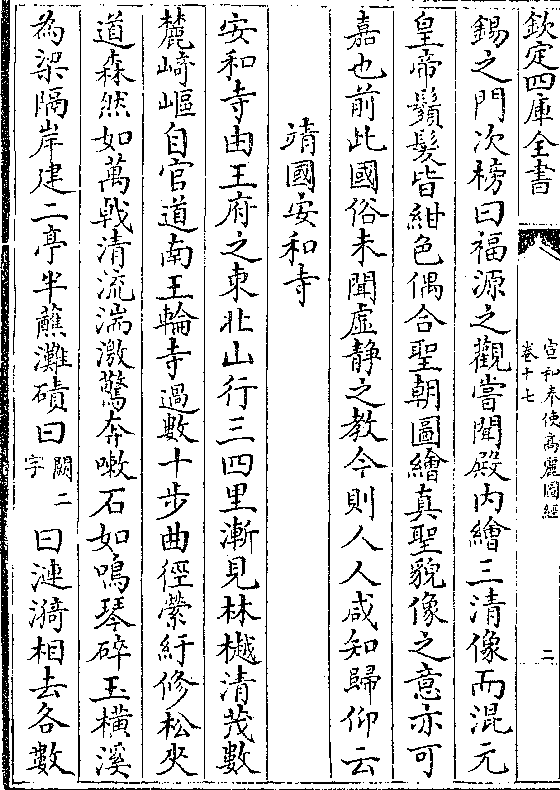 欽定四庫全書
宣和奉使高麗圖經
卷十七
二
錫之門次榜曰福源之觀嘗聞殿内繪三清像而混元
皇帝鬚髮皆紺色偶合聖朝圖繪真聖貌像之意亦可
嘉也前此國俗未聞虛静之教今則人人咸知歸仰云
靖國安和寺
安和寺由王府之東北山行三四里漸見林樾清茂數
麓崎嶇自官道南玉輪寺過數十步曲徑縈紆修松夾
道森然如萬㦸清流湍激驚奔嗽石如鳴琴碎玉横溪
為梁隔岸建二亭半蘸灘磧曰闕二字曰漣漪相去各數